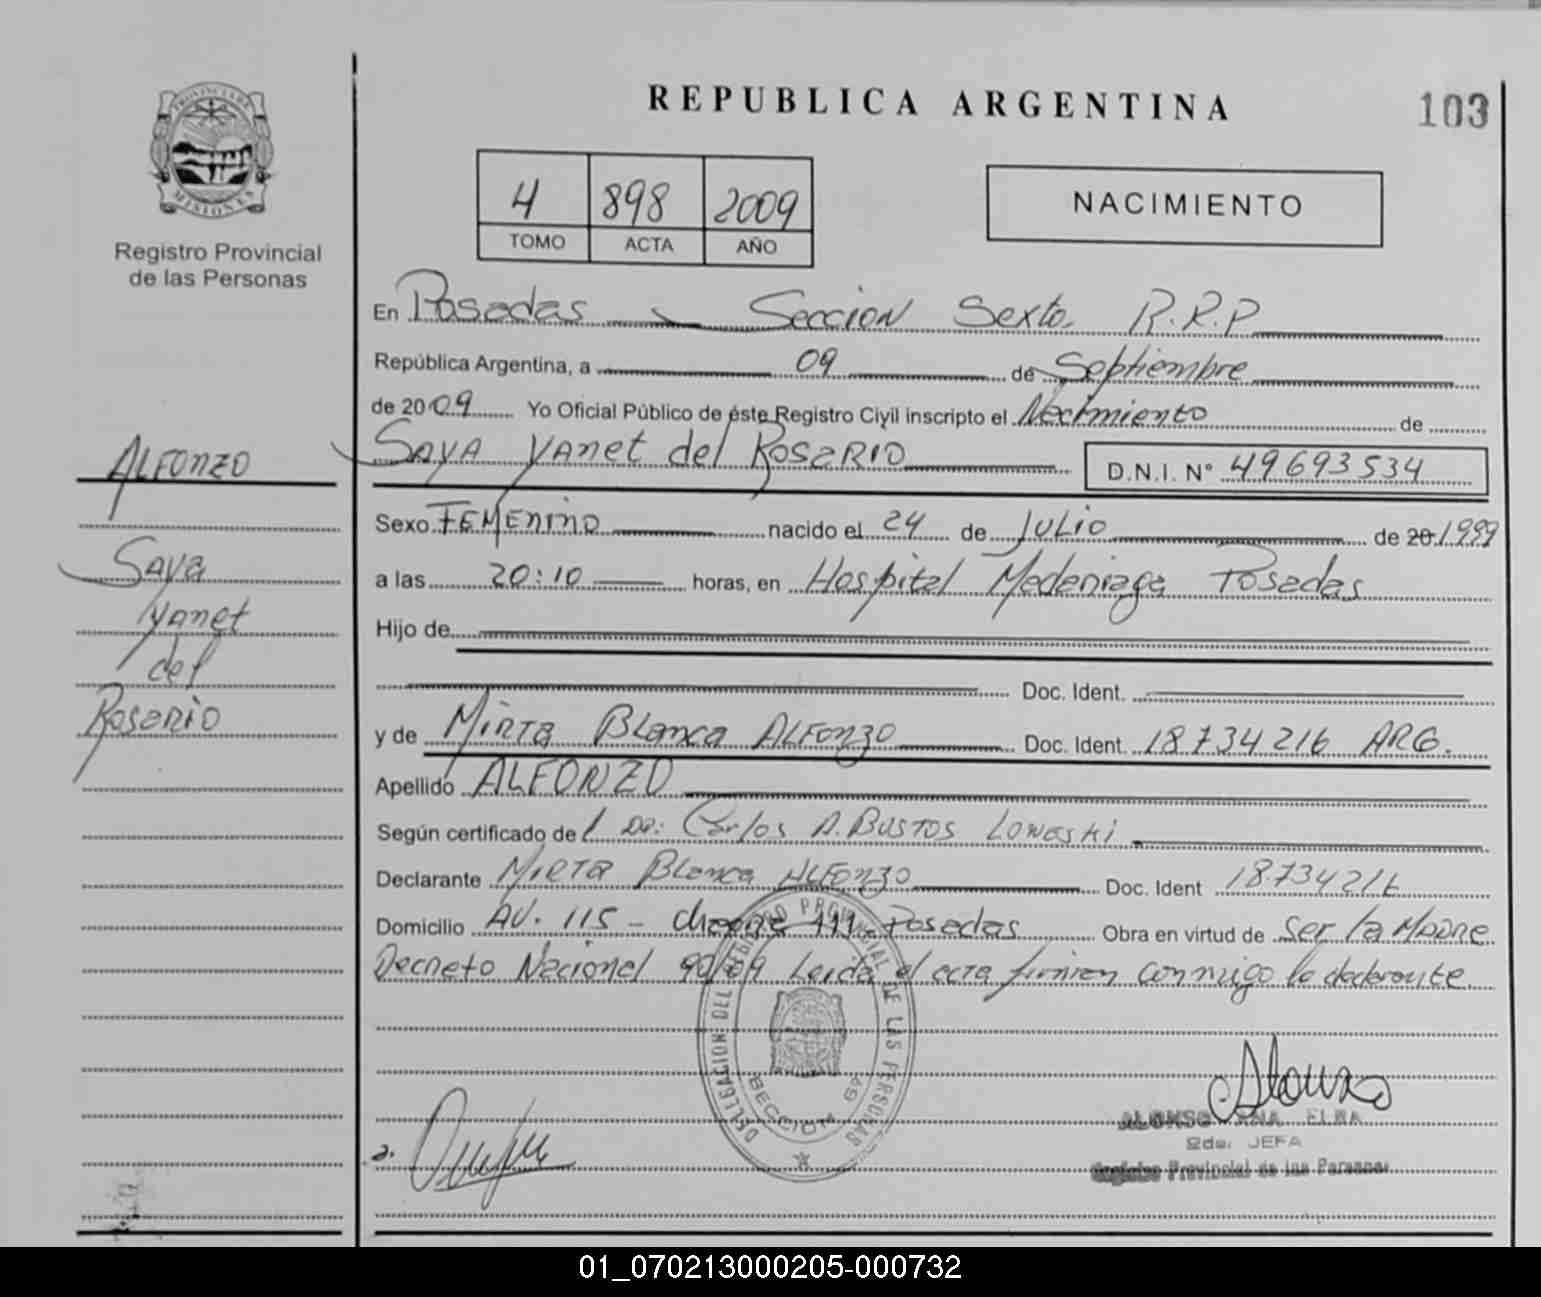 REPUBLICA ARGENTINA
103
PROVINCIA DE
MISIONES
Registro Provincial
de las Personas
4 898 2009
TOMO ACTA AÑO
NACIMIENTO
En Posadas Seccion Sexta R.R.P
República Argentina, a 09 de Septiembre
de 2009 Yo Oficial Público de éste Registro Civil inscripto el Nacimiento de
Saya Yanet del Rosario D.N.I. N° 49693534
Sexo Femenino nacido el 24 de Julio de 20 1999
a las 20:10 horas, en Hospital Posadas
Hijo de
Doc. Ident.
y de Mirta Blanca Alfonzo Doc. Ident. 18734216 ARG.
Apellido ALFONZO
Según certificado del Dr. Carlos A. Bustos
Declarante Mirta Blanca Alfonzo Doc. Ident 18734216
Domicilio AV. 115 - 111 - Posadas Obra en virtud de ser la Madre
Decreto Nacional 90/09 Leida el acta firman conmigo la declarante.
ALFONZO
Saya
Yanet
del
Rosario
DELEGACION DEL REGISTRO PROVINCIAL DE LAS PERSONAS
SECCION 6ª
ALONSO ANA ELBA
2da. JEFA
Registro Provincial de las Personas
01_070213000205-000732